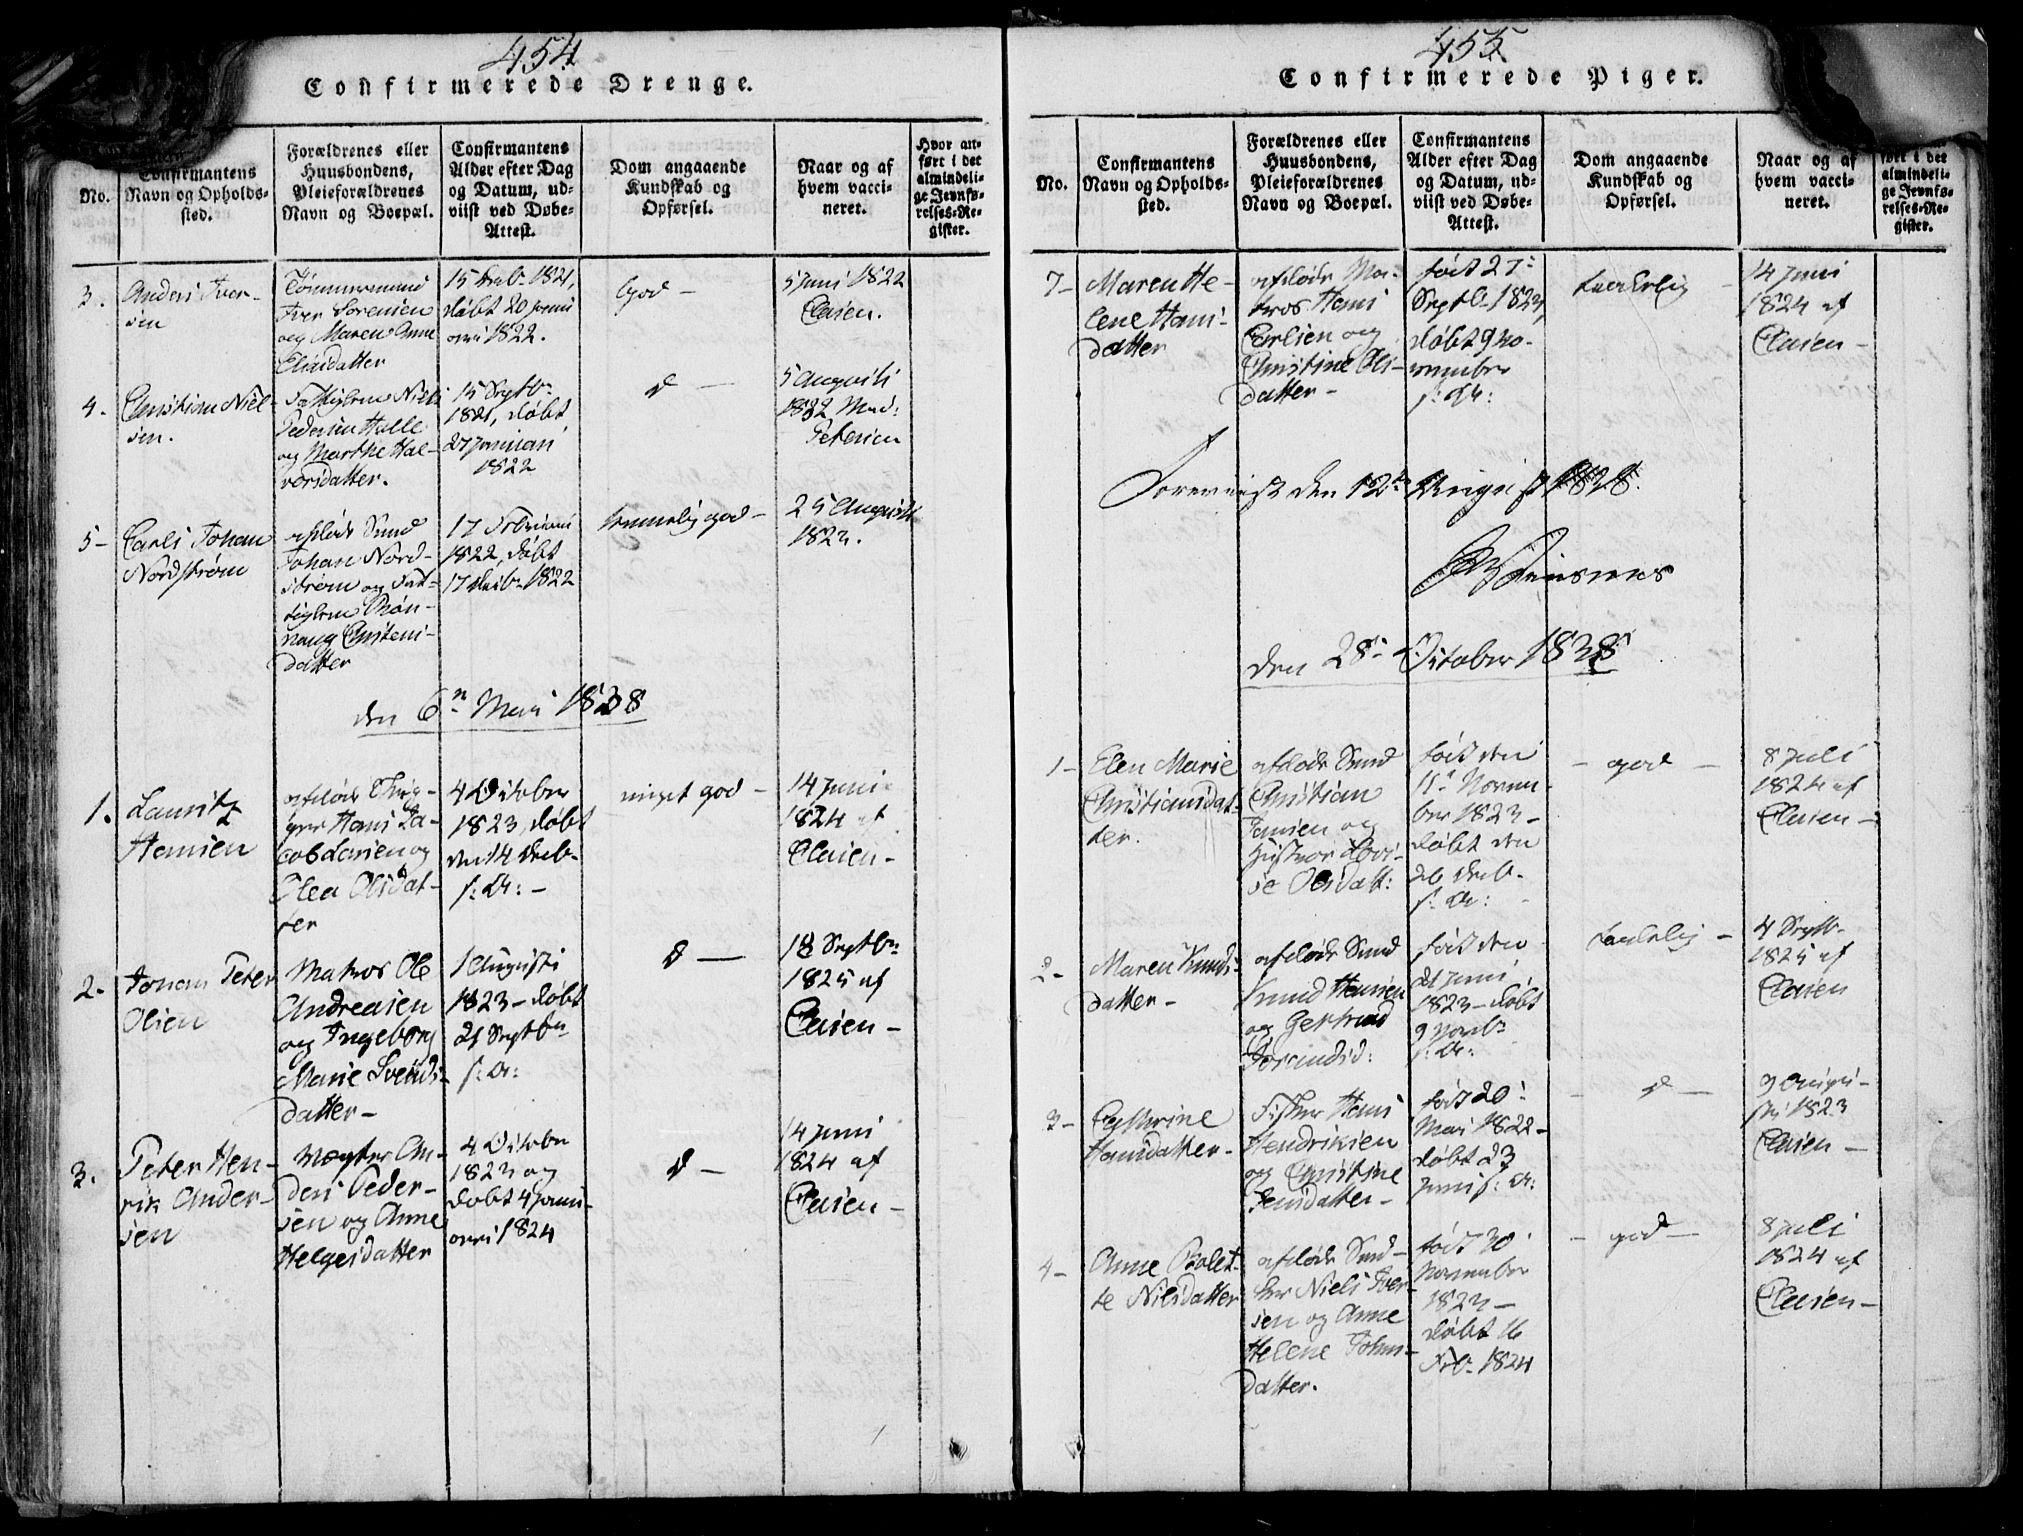 454
Confirmerede Drenge.
No.
Confirmantens
Navn og Opholds-
sted.
Forældrenes eller
Huusbondens,
Pleieforældrenes
Navn og Boepæl.
Confirmantens
Alder efter Dag
og Datum, ud-
viist ved Døbe-
Attest.
Dom angaaende
Kundskab og
Opførsel.
Naar og af
hvem vacci-
neret.
Hvor an-
ført i det
almindeli-
ge Jevnfø-
relses-Re-
gister.
3.
Anders Iver-
sen
Tømmermand
Iver Sørensen
og Maren Anne
Eliasdatter
15 Decb. 1821,
døbt 20 Janu
ari 1822.
God -
5 Juni 1822
Clasen.
4.
Christian Niel-
sen.
Pedersen Halle
og Marthe Hal-
vorsdatter.
15 Septbr
1821, døbt
27 Januari
1822
d -
5 Augusti
1822 Mad:
Petersen
5 -
Carls Johan
Nordstrøm
afdøde Smed
Johan Nord-
strøm og Fat-
tiglem Røn-
naug Christens-
datter
17 Februari
1822, døbt
17 Decb. 1822
temmelig god -
25 Augusti
1823.
den 6n Mai 1838
1.
Lauritz
Hansen
afdøde
Hans Ja-
cob Larsen og
Olea Olsdat-
ter
4 October
1823, døbt
den 14 Decb-
s: A: -
meget god -
14 Juni
1824 af
Clasen -
2.
Johan Peter
Olsen
Matros Ole
Andreasen
og Ingeborg
Marie Svends-
datter -
1 Augusti
1823 - døbt
21 Septbr
s: A:
d -
18 Septbr
1825 af
Clasen -
3.
Peter Hen-
rik Ander-
sen
Vægter An-
ders Peder-
sen og Anne
Helgesdatter
4 Octobr
1823 og
døbt 4 Janu-
ari 1824
d -
14 Juni
1824 af
Clasen -
455
Confirmerede Piger.
No.
Confirmantens
Navn og Opholds-
sted.
Forældrenes eller
Huusbondens,
Pleieforældrenes
Navn og Boepæl.
Confirmantens
Alder efter Dag
og Datum, ud-
viist ved Døbe-
Attest.
Dom angaaende
Kundskab og
Opførsel.
Naar og af
hvem vacci-
neret.
ført i det
almindeli-
ge Jevnfø-
relses-Re-
gister.
7 -
Maren He-
lene Hans-
datter
afdøde Ma-
tros Hans
Carlsen og
Christine Ols-
datter -
født 27
Septb. 1823,
døbt 9 No-
vember
s: A:
taalelig -
14 Juni
1824 af
Clasen -
Foreviist den 12te August 1828.
den 28. October 1838
1 -
Elen Marie
Christiansdat-
ter.
afdøde Smed
Christian
Jansen og
Hustroe Lovi-
se Olsdatt:
født den
11. Novem-
ber 1823 -
døbt den
26 Decb.
s: A:
- god -
8 Juli
1824 af
Clasen -
2 -
Maren Knuds-
datter -
afdøde Smed
Knud Hansen
og Gertrud
født den
21 Juni
1823 - døbt
9 Novbr
s: A:
taalelig -
4 Septb.
1825 af
Clasen
3 -
Cathrine
Hansdatter -
Fisker Hans
Hendriksen
og Christine
Jensdatter -
født 20
Mai 1822 -
døbt 23
Juni s: A:
- d -
9 Augu-
sti 1823
Clasen -
4 -
Anne Bolet-
te Nilsdatter
afdøde Sned-
ker Niels Iver-
sen og Anne
Helene Johns-
datter.
født 30
November
1823 -
døbt 16
Feb. 1824
- god -
8 Juli
1824 af
Clasen -